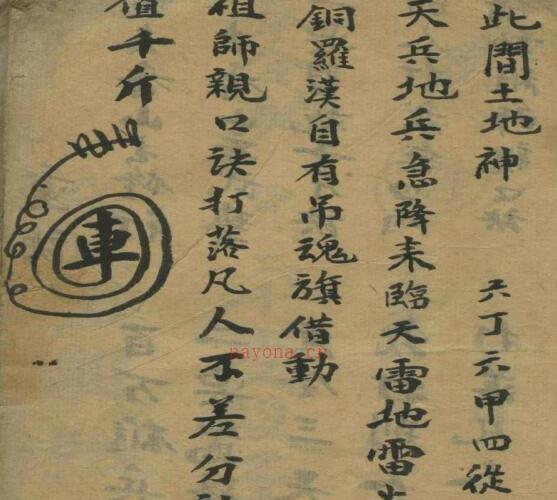 此間土地神 六丁六甲四從
天兵地兵急降来臨天雷地雷
銅羅漢自有吊魂旗借動
祖師親口訣打落凡人不差分
值千斤
車
nayona.cn